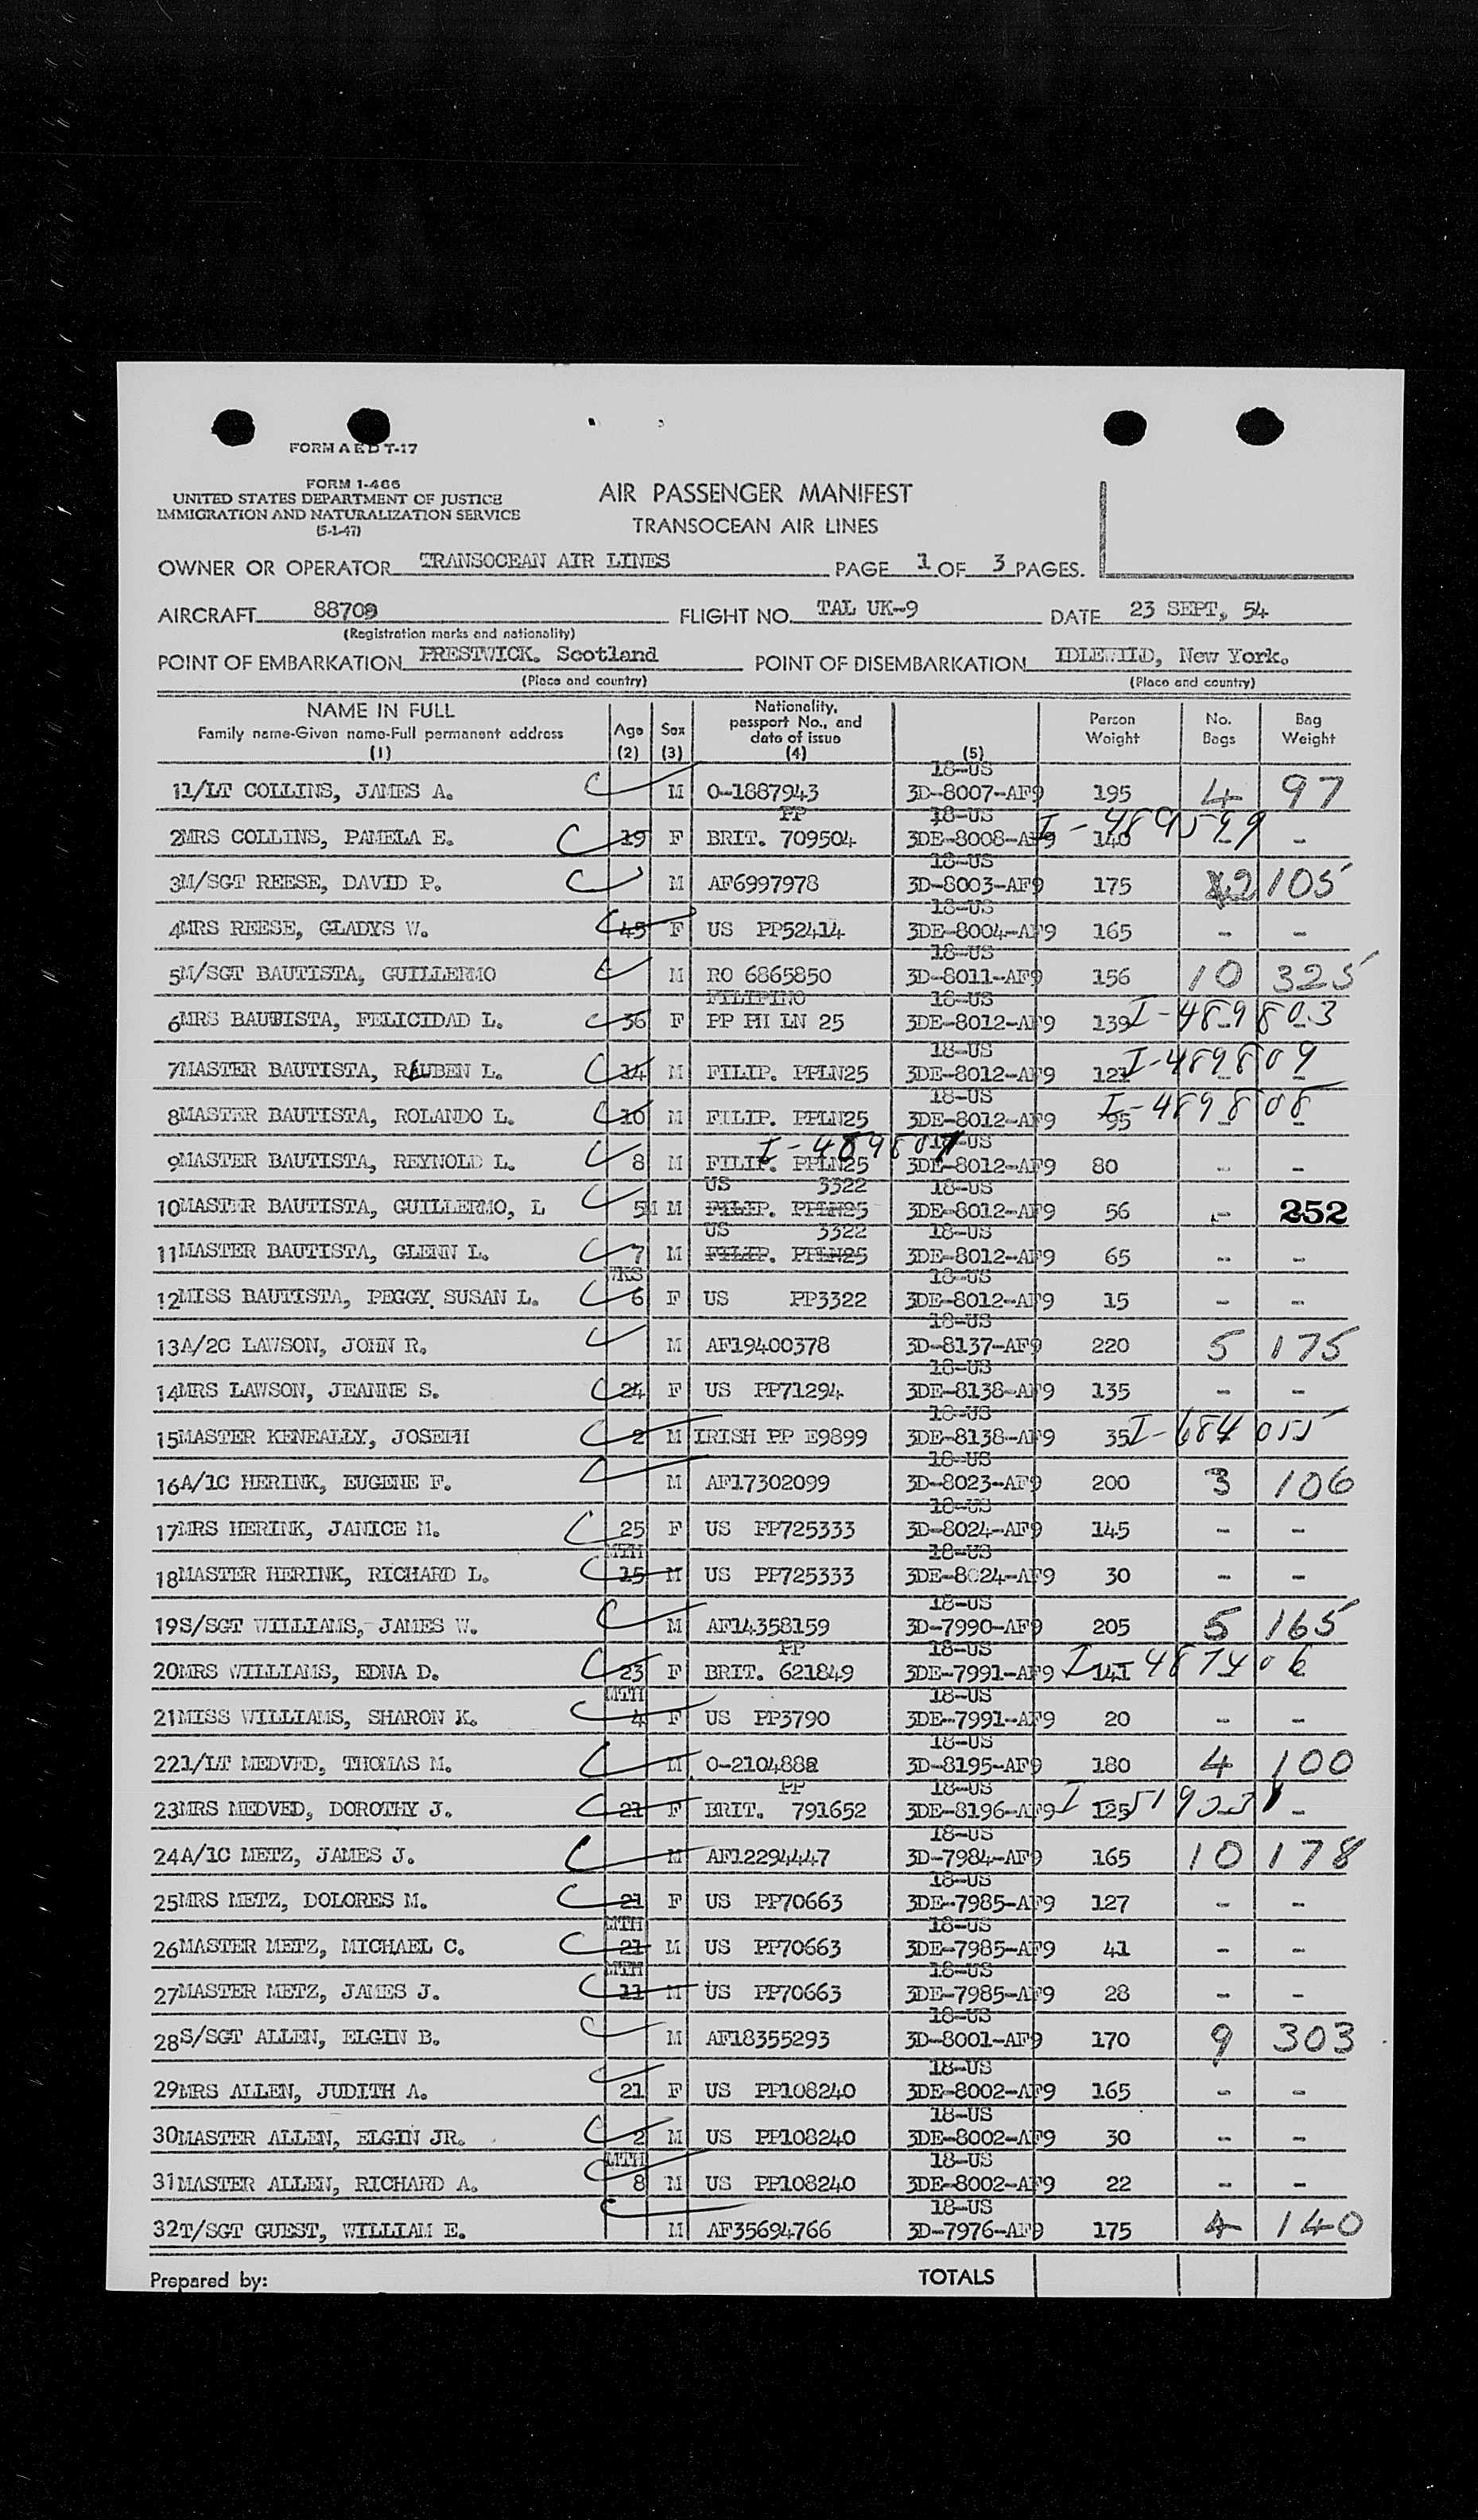 FORM A E D T-17
FORM I-466
UNITED STATES DEPARTMENT OF JUSTICE
IMMIGRATION AND NATURALIZATION SERVICE
(5-1-47)
AIR PASSENGER MANIFEST
TRANSOCEAN AIR LINES
OWNER OR OPERATOR TRANSOCEAN AIR LINES PAGE 1 OF 3 PAGES.
AIRCRAFT 88709 FLIGHT NO. TAL UK-9 DATE 23 SEPT, 54
(Registration marks and nationality)
POINT OF EMBARKATION PRESTWICK. Scotland POINT OF DISEMBARKATION IDLEWILD, New York.
(Place and country) (Place and country)
NAME IN FULL Family name-Given name-Full permanent address (1) Age (2) Sex (3) Nationality, passport No., and date of issue (4) (5) Person Weight No. Bags Bag Weight
18-US
1 1/LT COLLINS, JAMES A. M O-1887943 3D-8007-AF9 195 4 97
PP 18-US
2 MRS COLLINS, PAMELA E. 19 F BRIT. 709504 3DE-8008-AF9 140 -
18-US
3 M/SGT REESE, DAVID P. M AF6997978 3D-8003-AF9 175 2 105
18-US
4 MRS REESE, GLADYS W. 45 F US PP52414 3DE-8004-AF9 165 - -
18-US
5 M/SGT BAUTISTA, GUILLERMO M RO 6865850 3D-8011-AF9 156 10 325
FILIPINO 18-US
6 MRS BAUTISTA, FELICIDAD L. 36 F PP PH LN 25 3DE-8012-AF9 139 I-489803
18-US
7 MASTER BAUTISTA, REUBEN L. 14 M FILIP. PPLN25 3DE-8012-AF9 121 I-489809
18-US
8 MASTER BAUTISTA, ROLANDO L. 10 M FILIP. PPLN25 3DE-8012-AF9 95 I-489808
I-489807 18-US
9 MASTER BAUTISTA, REYNOLD L. 8 M FILIP. PPLN25 3DE-8012-AF9 80 - -
US 3322 18-US
10 MASTER BAUTISTA, GUILLERMO, L 5 M FILIP. PPLN25 3DE-8012-AF9 56 - 252
US 3322 18-US
11 MASTER BAUTISTA, GLENN L. 7 M FILIP. PPLN25 3DE-8012-AF9 65 - -
WKS 18-US
12 MISS BAUTISTA, PEGGY SUSAN L. 6 F US PP3322 3DE-8012-AF9 15 - -
18-US
13 A/2C LAWSON, JOHN R. M AF19400378 3D-8137-AF9 220 5 175
18-US
14 MRS LAWSON, JEANNE S. 24 F US PP71294 3DE-8138-AF9 135 - -
18-US
15 MASTER KENEALLY, JOSEPH 2 M IRISH PP E9899 3DE-8138-AF9 35 I-684055
18-US
16 A/1C HERINK, EUGENE F. M AF17302099 3D-8023-AF9 200 3 106
18-US
17 MRS HERINK, JANICE M. 25 F US PP725333 3D-8024-AF9 145 - -
MTH 18-US
18 MASTER HERINK, RICHARD L. 15 M US PP725333 3DE-8024-AF9 30 - -
18-US
19 S/SGT WILLIAMS, JAMES W. M AF14358159 3D-7990-AF9 205 5 165
PP 18-US
20 MRS WILLIAMS, EDNA D. 23 F BRIT. 621849 3DE-7991-AF9 141
MTH 18-US
21 MISS WILLIAMS, SHARON K. 4 F US PP3790 3DE-7991-AF9 20 - -
18-US
22 1/LT MEDVED, THOMAS M. M O-2104882 3D-8195-AF9 180 4 100
PP 18-US
23 MRS MEDVED, DOROTHY J. 21 F BRIT. 791652 3DE-8196-AF9 125 -
18-US
24 A/1C METZ, JAMES J. M AF12294447 3D-7984-AF9 165 10 178
18-US
25 MRS METZ, DOLORES M. 21 F US PP70663 3DE-7985-AF9 127 - -
MTH 18-US
26 MASTER METZ, MICHAEL C. 21 M US PP70663 3DE-7985-AF9 41 - -
MTH 18-US
27 MASTER METZ, JAMES J. 11 M US PP70663 3DE-7985-AF9 28 - -
18-US
28 S/SGT ALLEN, ELGIN B. M AF18355293 3D-8001-AF9 170 9 303
18-US
29 MRS ALLEN, JUDITH A. 21 F US PP108240 3DE-8002-AF9 165 - -
18-US
30 MASTER ALLEN, ELGIN JR. 2 M US PP108240 3DE-8002-AF9 30 - -
MTH 18-US
31 MASTER ALLEN, RICHARD A. 8 M US PP108240 3DE-8002-AF9 22 - -
18-US
32 T/SGT GUEST, WILLIAM E. M AF35694766 3D-7976-AF9 175 4 140
Prepared by: TOTALS